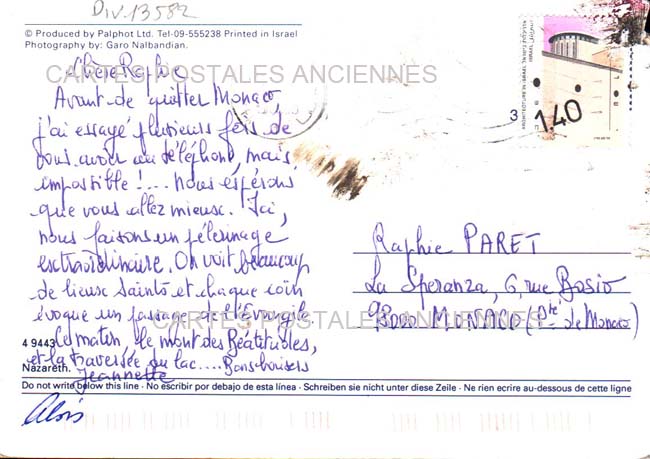 Div.13582
© Produced by Palphot Ltd. Tel-09-555238 Printed in Israel
Photography by: Garo Nalbandian.
CARTES POSTALES ANCIENNES
Chère Raphie
Avant de quitter Monaco,
j'ai essayé plusieurs fois de
vous avoir au téléphone, mais
impossible !.... nous espérons
que vous allez mieux. Ici,
nous faisons un pélerinage
extraordinaire. On voit beaucoup
de lieux Saints et chaque coin
évoque un passage de l'Evangile
CARTES POSTALES ANCIENNES
Ce matin, le mont des Béatitudes,
et la traversée du lac.... Bons baisers
Jeannette
Aloïs
4 9443
Nazareth.
ARCHITECTURE IN ISRAEL
3
1.40
Raphie PARET
La Speranza, 6, rue Bosio
98000 MONACO (Pté de Monaco)
Do not write below this line · No escribir por debajo de esta línea · Schreiben sie nicht unter diese Zeile · Ne rien ecrire au-dessous de cette ligne